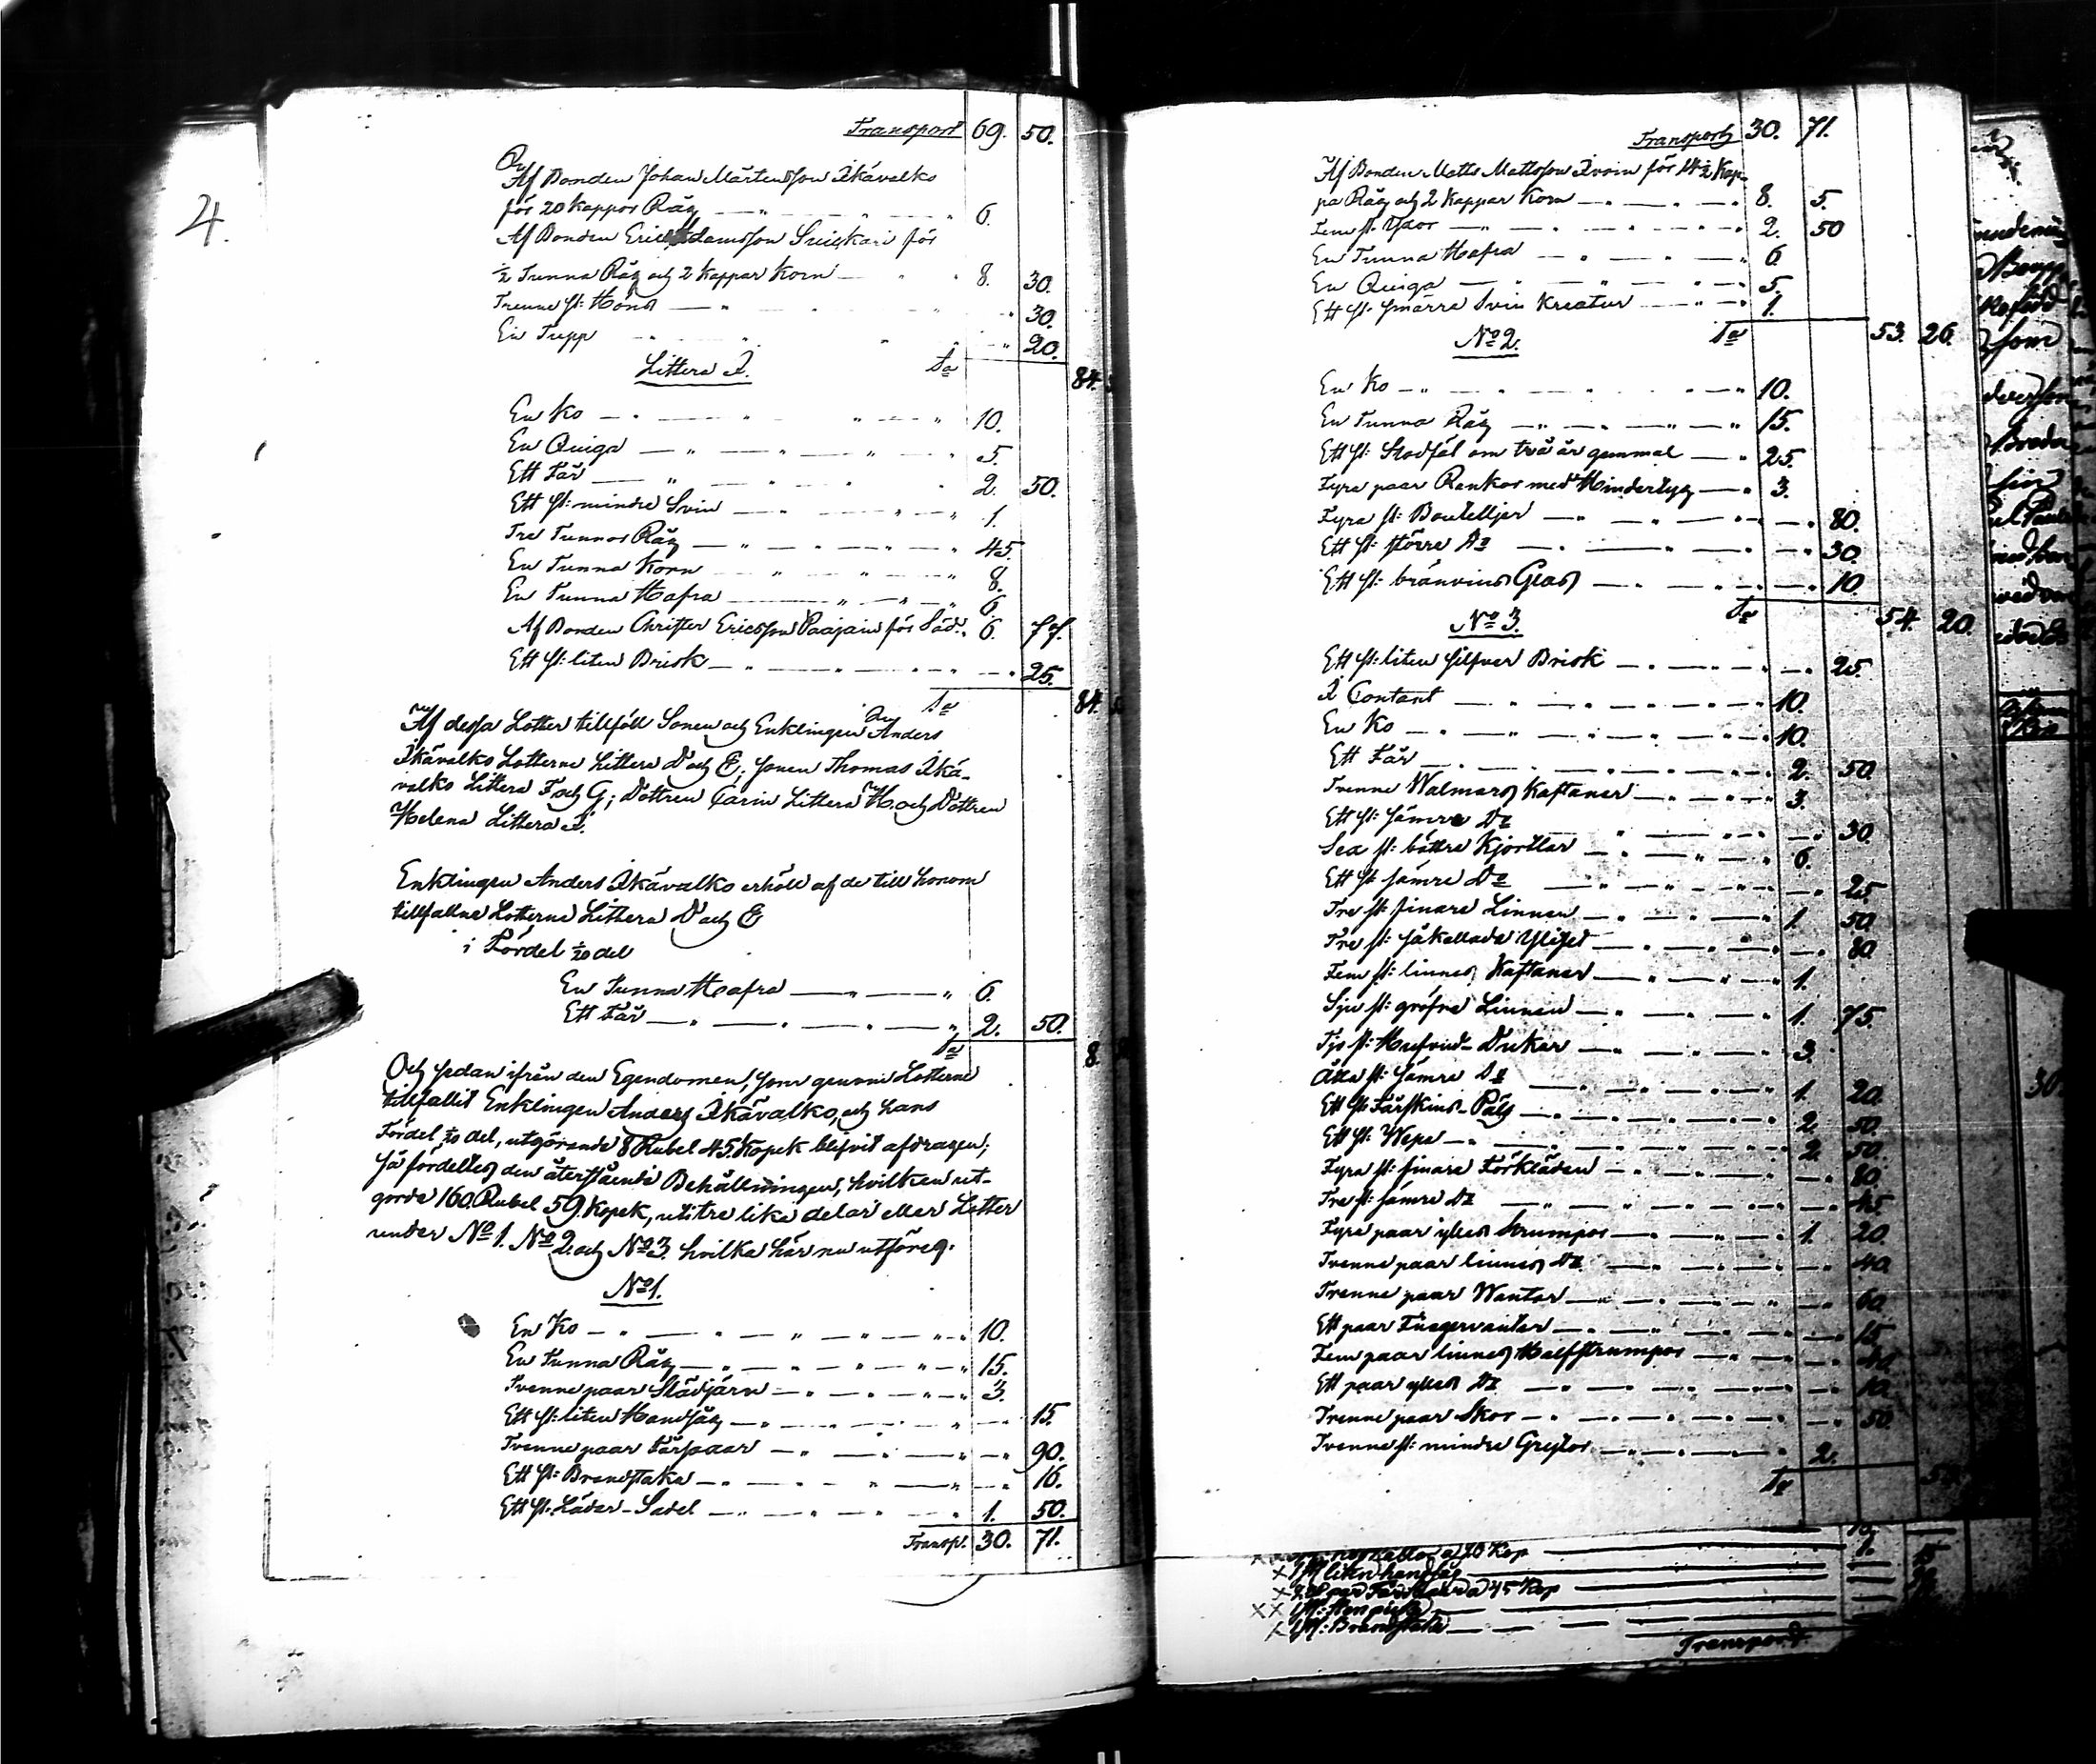 4.
Transport 69. 50.
Af Bonden Johan Mårtensson Ikävalko
för 20 kappor Råg — 6.
Af Bonden Eric Adamsson Suikkari för
½ Tunna Råg och 2 kappar Korn — 8. 30.
Trenne st: Höns — 30.
En Tupp — 20.
Littera I. Sa 84.
En Ko — 10.
En Quiga — 5.
Ett Får — 2. 50.
Ett st: mindre Svin — 1.
Tre Tunnor Råg — 45.
En Tunna Korn — 8.
En Tunna Hafra — 6.
Af Bonden Christer Ericsson Paajain för Säd: 6. 77.
Ett st: liten Brisk — 25.
Sa 84.
Af dessa Lotter tillföll Sonen och Enklingen Anders
Ikävalko Lotterne Littera D och E, sonen Thomas Ikä-
valko Littera F och G; Dottren Carin Littera H. och Dottren
Helena Littera I.
Enklingen Anders Ikävalko erhöll af de till honom
tillfallne Lotterne Littera D och E
i Fördel 1/20 del
En Tunna Hafra — 6.
Ett Får — 2. 50.
Sa 8.
Och sedan ifrån den Egendomen, som genom Lotterne
tillfallit Enklingen Anders Ikävalko, och hans
Fördel 1/20 del, utgörande 8 Rubel 45. Kopek blifvit afdragen;
så fördeltes den återstående Behållningen, hvilken ut-
gorde 160. Rubel 59. Kopek, uti tre lika delar eller Lotter
under No 1. No 2. och No 3. hvilka här nu utföres.
No 1.
En Ko — 10.
En Tunna Råg — 15.
Tvenne paar Städjärn — 3.
Ett st: liten Handsåg — 15.
Tvenne paar Fårsaxar — 90.
Ett st: Brandstake — 16.
Ett st: Läder-Sadel — 1. 50.
Transp. 30. 71.
Transport 30. 71.
Af Bonden Matts Mattsson Ivoin för 14½ Kap-
pa Råg och 2 Kappar Korn — 8. 5.
Fem st. Yxor — 2. 50
En Tunna Hafra — 6
En Quiga — 5.
Ett st. smärre Svin Kreatur — 1.
No 2. Sa 53. 26.
En Ko — 10.
En Tunna Råg — 15.
Ett st: Stodföl om två år gammal — 25.
Fyra paar Rankor med Hindertyg — 3.
Fyra st: Bouteljer — 80.
Ett st: större Do — 30.
Ett st: bränvins Glas — 10.
No 3. Sa 54. 20.
Ett st: liten silfver Brisk — 25.
I Contant — 10.
En Ko — 10.
Ett Får — 2. 50.
Tvenne Walmars Kaftaner — 3.
Ett st: sämre Do — 30.
Sex st: bättre Kjortlar — 6.
Ett st. sämre Do — 25.
Tre st: finare Linnen — 1. 50.
Tre st: så kallade — 80.
Fem st: linnes Kaftaner — 1.
Sju st: gröfre Linnen — 1. 75.
Tjo st: Hufvud-Dukar — 3.
Åtta st: sämre Do — 1. 20.
Ett st: Fårskins-Päls — 2. 50.
Ett st: Wepa — 2. 50.
Fyra st: finare Förkläden — 80.
Tre st: sämre Do — 45.
Fyra paar ylles Strumpor — 1. 20.
Tvenne paar linnes Do — 40.
Trenne paar Wantar — 60.
Ett paar Fingervantar — 15.
Fem paar linnes Halfstrumpor — 40.
Ett paar ylles Do — 10.
Trenne paar Skor — 50.
Tvenne st: mindre Grytor — 2.
Sa
a 20 Kop
1 st liten handsåg
a 45 Kop
1 st: Brandstake
Transport.